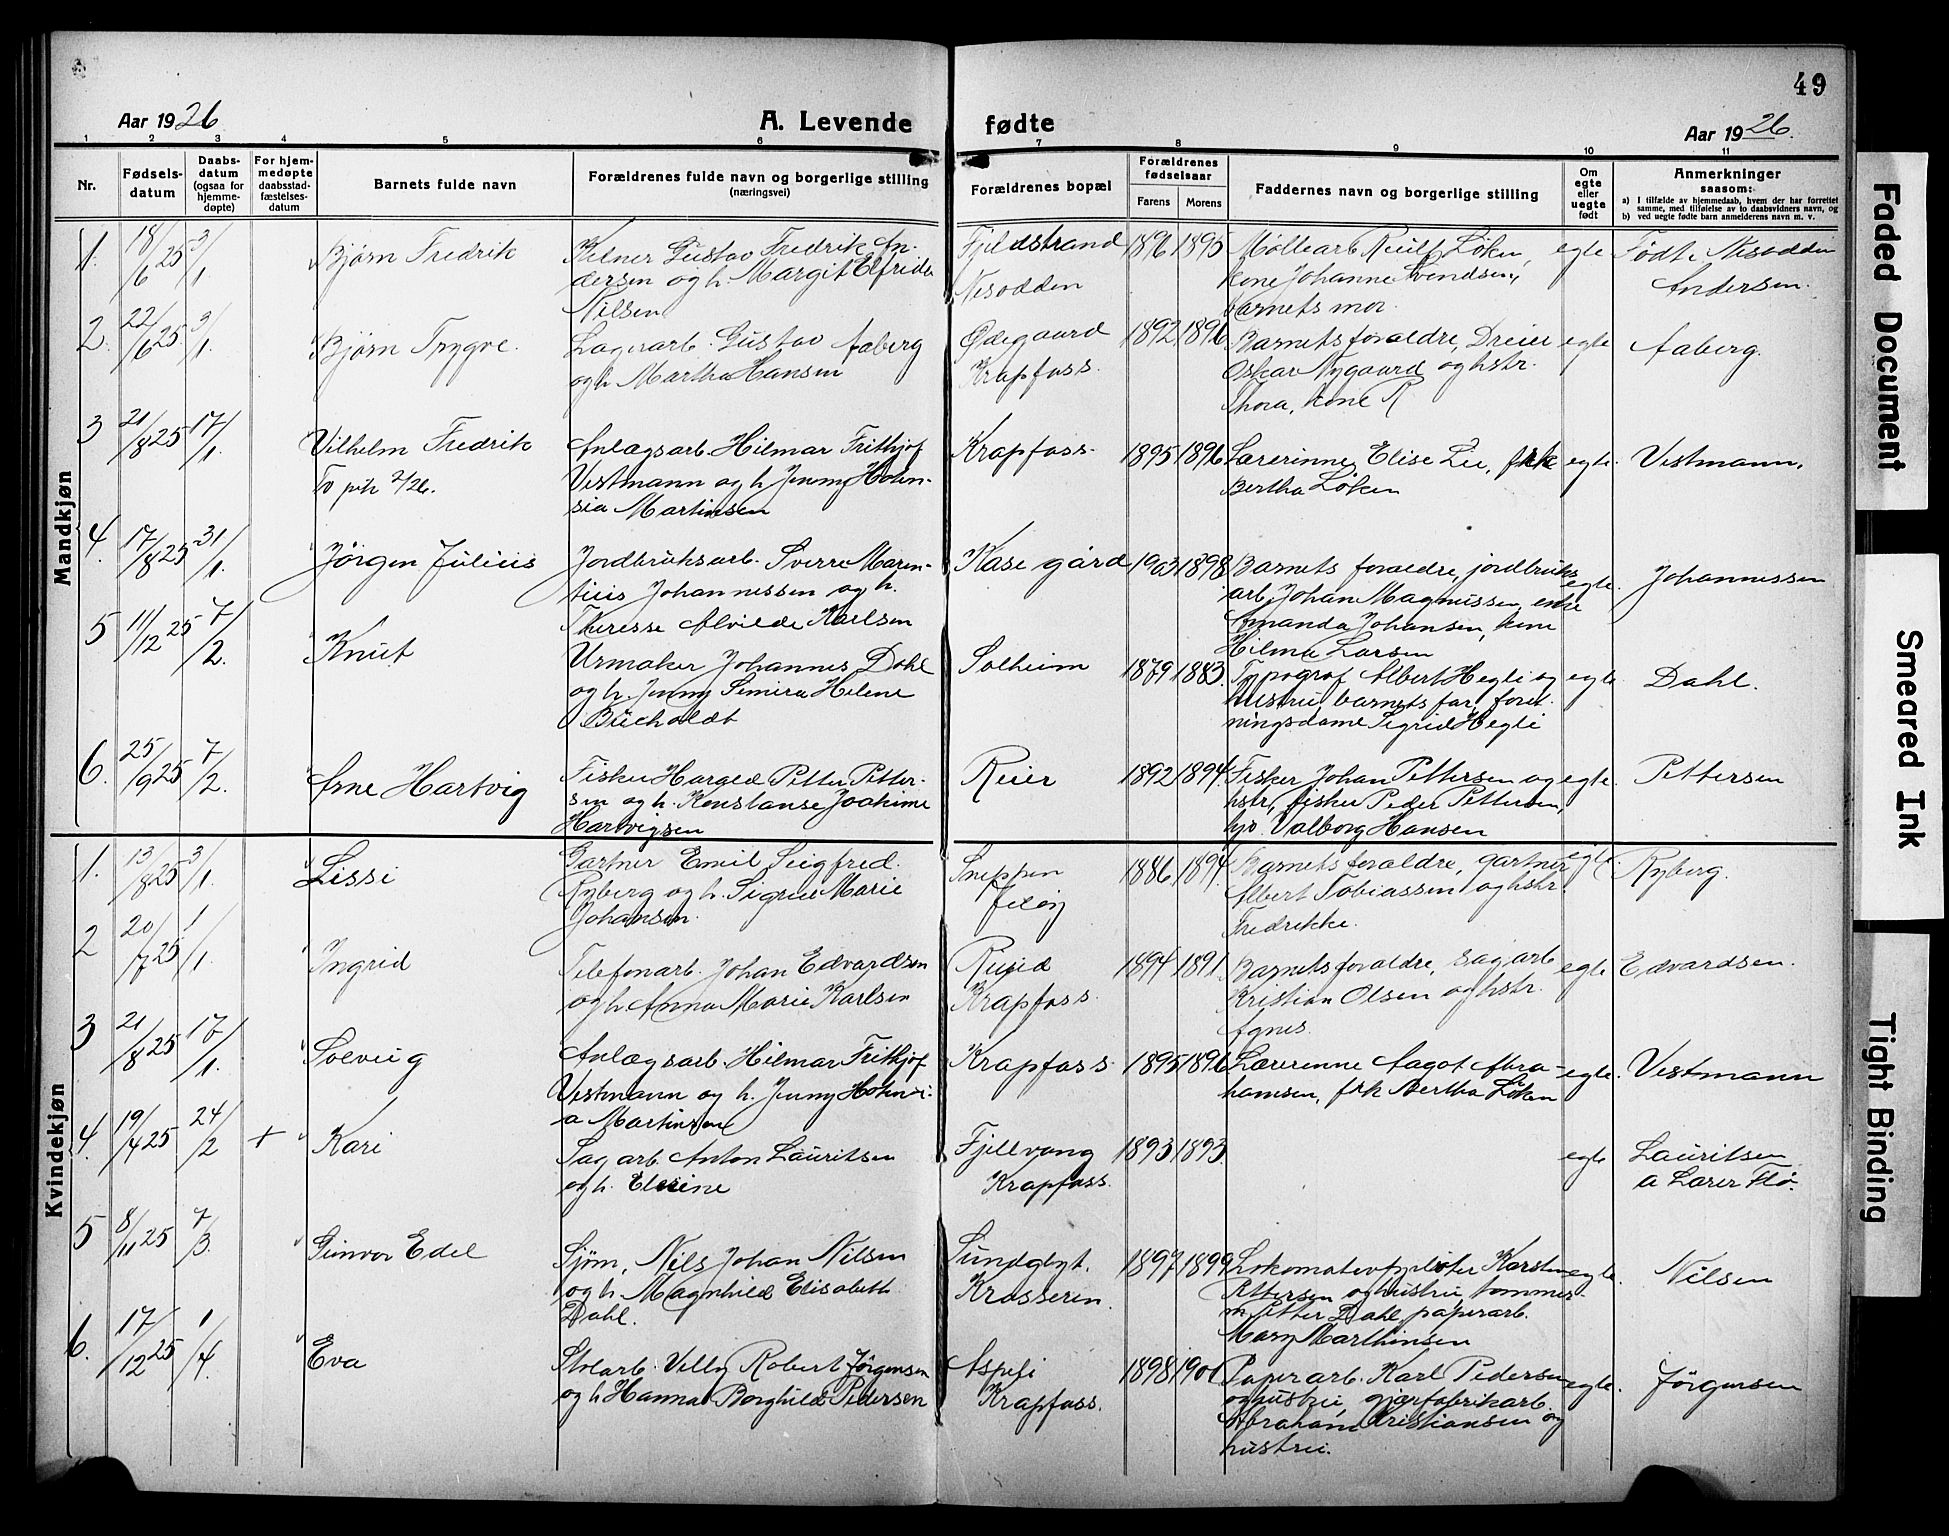 49
Aar 1926
A. Levende fødte
Aar 1926.
1 2 3 4 5 6 7 8 9 10 11
Nr.
Fødsels-
datum
Daabs-
datum
(ogsaa for
hjemme-
døpte)
For hjem-
medøpte
daabsstad-
fæstelses-
datum
Barnets fulde navn
Forældrenes fulde navn og borgerlige stilling
(næringsvei)
Forældrenes bopæl
Forældrenes
fødselsaar
Farens Morens
Faddernes navn og borgerlige stilling
Om
egte
eller
uegte
født
Anmerkninger
saasom:
a) I tilfælde av hjemmedaab, hvem der har forrettet
samme, med tilføielse av to daabsvidners navn, og
b) ved uegte fødte barn anmelderens navn m. v.
Mandkjøn
1. 18/6 25 3/1 Bjørn Fredrik
Kelner Gustav Fredrik An-
dersen og h. Margit Elfrida
Nilsen
Fjeldstrand
Nesodden
1896 1895
Møllearb. Løken,
kone Johanne Svendsen,
barnets mor.
egte
Født i Nesodden
Andersen.
2. 22/6 25 3/1 Bjørn Trygve.
Lagerarb. Gustav Aaberg
og h. Martha Hansen
Ødegaard
Krapfoss.
1892 1896
Barnets foreldre, Dreier
Oskar Nygaard og hstr.
Thora, kone R
egte
Aaberg.
3 21/8 25 17/1 Vilhelm Fredrik
Anlægsarb. Hilmar Frithjof
Vestmann og h. Jenny Holen-
sia Martinsen
Krapfoss.
1895 1896
Lærerinne Elise Lie, frk
Bertha Løken
egte.
Vestmann.
4. 17/8 25 31/1 Jörgen Julius
Jordbruksarb. Sverre Maren-
tius Johannessen og h.
Theresse Alvilde Karlsen
Kase gård
1903 1898
Barnets foreldre, jordbruks
arb. Johan Magnussen, enke
Amanda Johansen, kone
Hilma Larsen
egte.
Johannessen
5 11/12 25 7/2. Knut
Urmaker Johannes Dahl
og h. Jenny Semira Helene
Bucholdt
Solheim
1879 1883.
Typograf Albert Hegli og
hustru, barnets far, foret-
ningsdame Sigrid Hegli
egte
Dahl.
6. 25/9 25 7/2. Arne Hartvig
Fisker Harald Petter Petter-
sen og h. Konstanse Joakime
Hartvigsen
Reier
1892 1894.
Fisker Johan Pettersen og
hstr, fisker Peder Pettersen,
Valborg Hansen
egte.
Pettersen
Kvindekjøn
1. 13/8 25 3/1. Lissi
Gartner Emil Seigfred
Ryberg og h. Sigrid Marie
Johansen.
Sneppen
Jeløy
1886 1894.
Barnets foreldre, gartner
Albert Tobiassen og hstr.
Fredrikke.
egte.
Ryberg.
2 20/7 25 1/1. Ingrid
Telefonarb. Johan Edvardsen
og h. Anna Marie Karlsen
Krapfoss.
1894 1891.
Barnets foreldre, sagarb
Kristian Olsen og hstr.
Agnes.
egte
Edvardsen.
3 21/8 25 17/1. Solveig
Anlægsarb. Hilmar Frithjof
Vestmann og h. Jenny Holensi-
a Martinsen
Krapfoss
1895 1896
Lærerinne Aagot Abra-
hamsen, frk Bertha Løken
egte.
Vestmann
4. 19/4 25 24/2 + Kari
Sagarb. Anton Lauritsen
og h. Elerine
Fjellvang
Krapfoss.
1893 1893.
egte
Lauritsen
a Lærer Flø.
5 8/11 25 7/3. Gunvor Edel
Sjøm. Nils Johan Nilsen
og h. Magnhild Elisabeth
Dahl.
Sundgbyt.
Krosseren.
1897 1899
Lokomotivfyrbøter Karsten
Pettersen og hustru, tømmer-
m. Petter Dahl, papirarb.
Mary Marthinsen
egte.
Nilsen
6. 17/12 25 1/4. Eva
Stolarb. Villy Robert Jörgensen
og h. Hanna Borghild Pedersen
Krapfoss.
1898
Papirarb. Karl Pedersen
og hustru, gjærfabrikarb.
Abraham Kristiansen og
hustru.
egte.
Jörgensen
Faded Document
Smeared Ink
Tight Binding